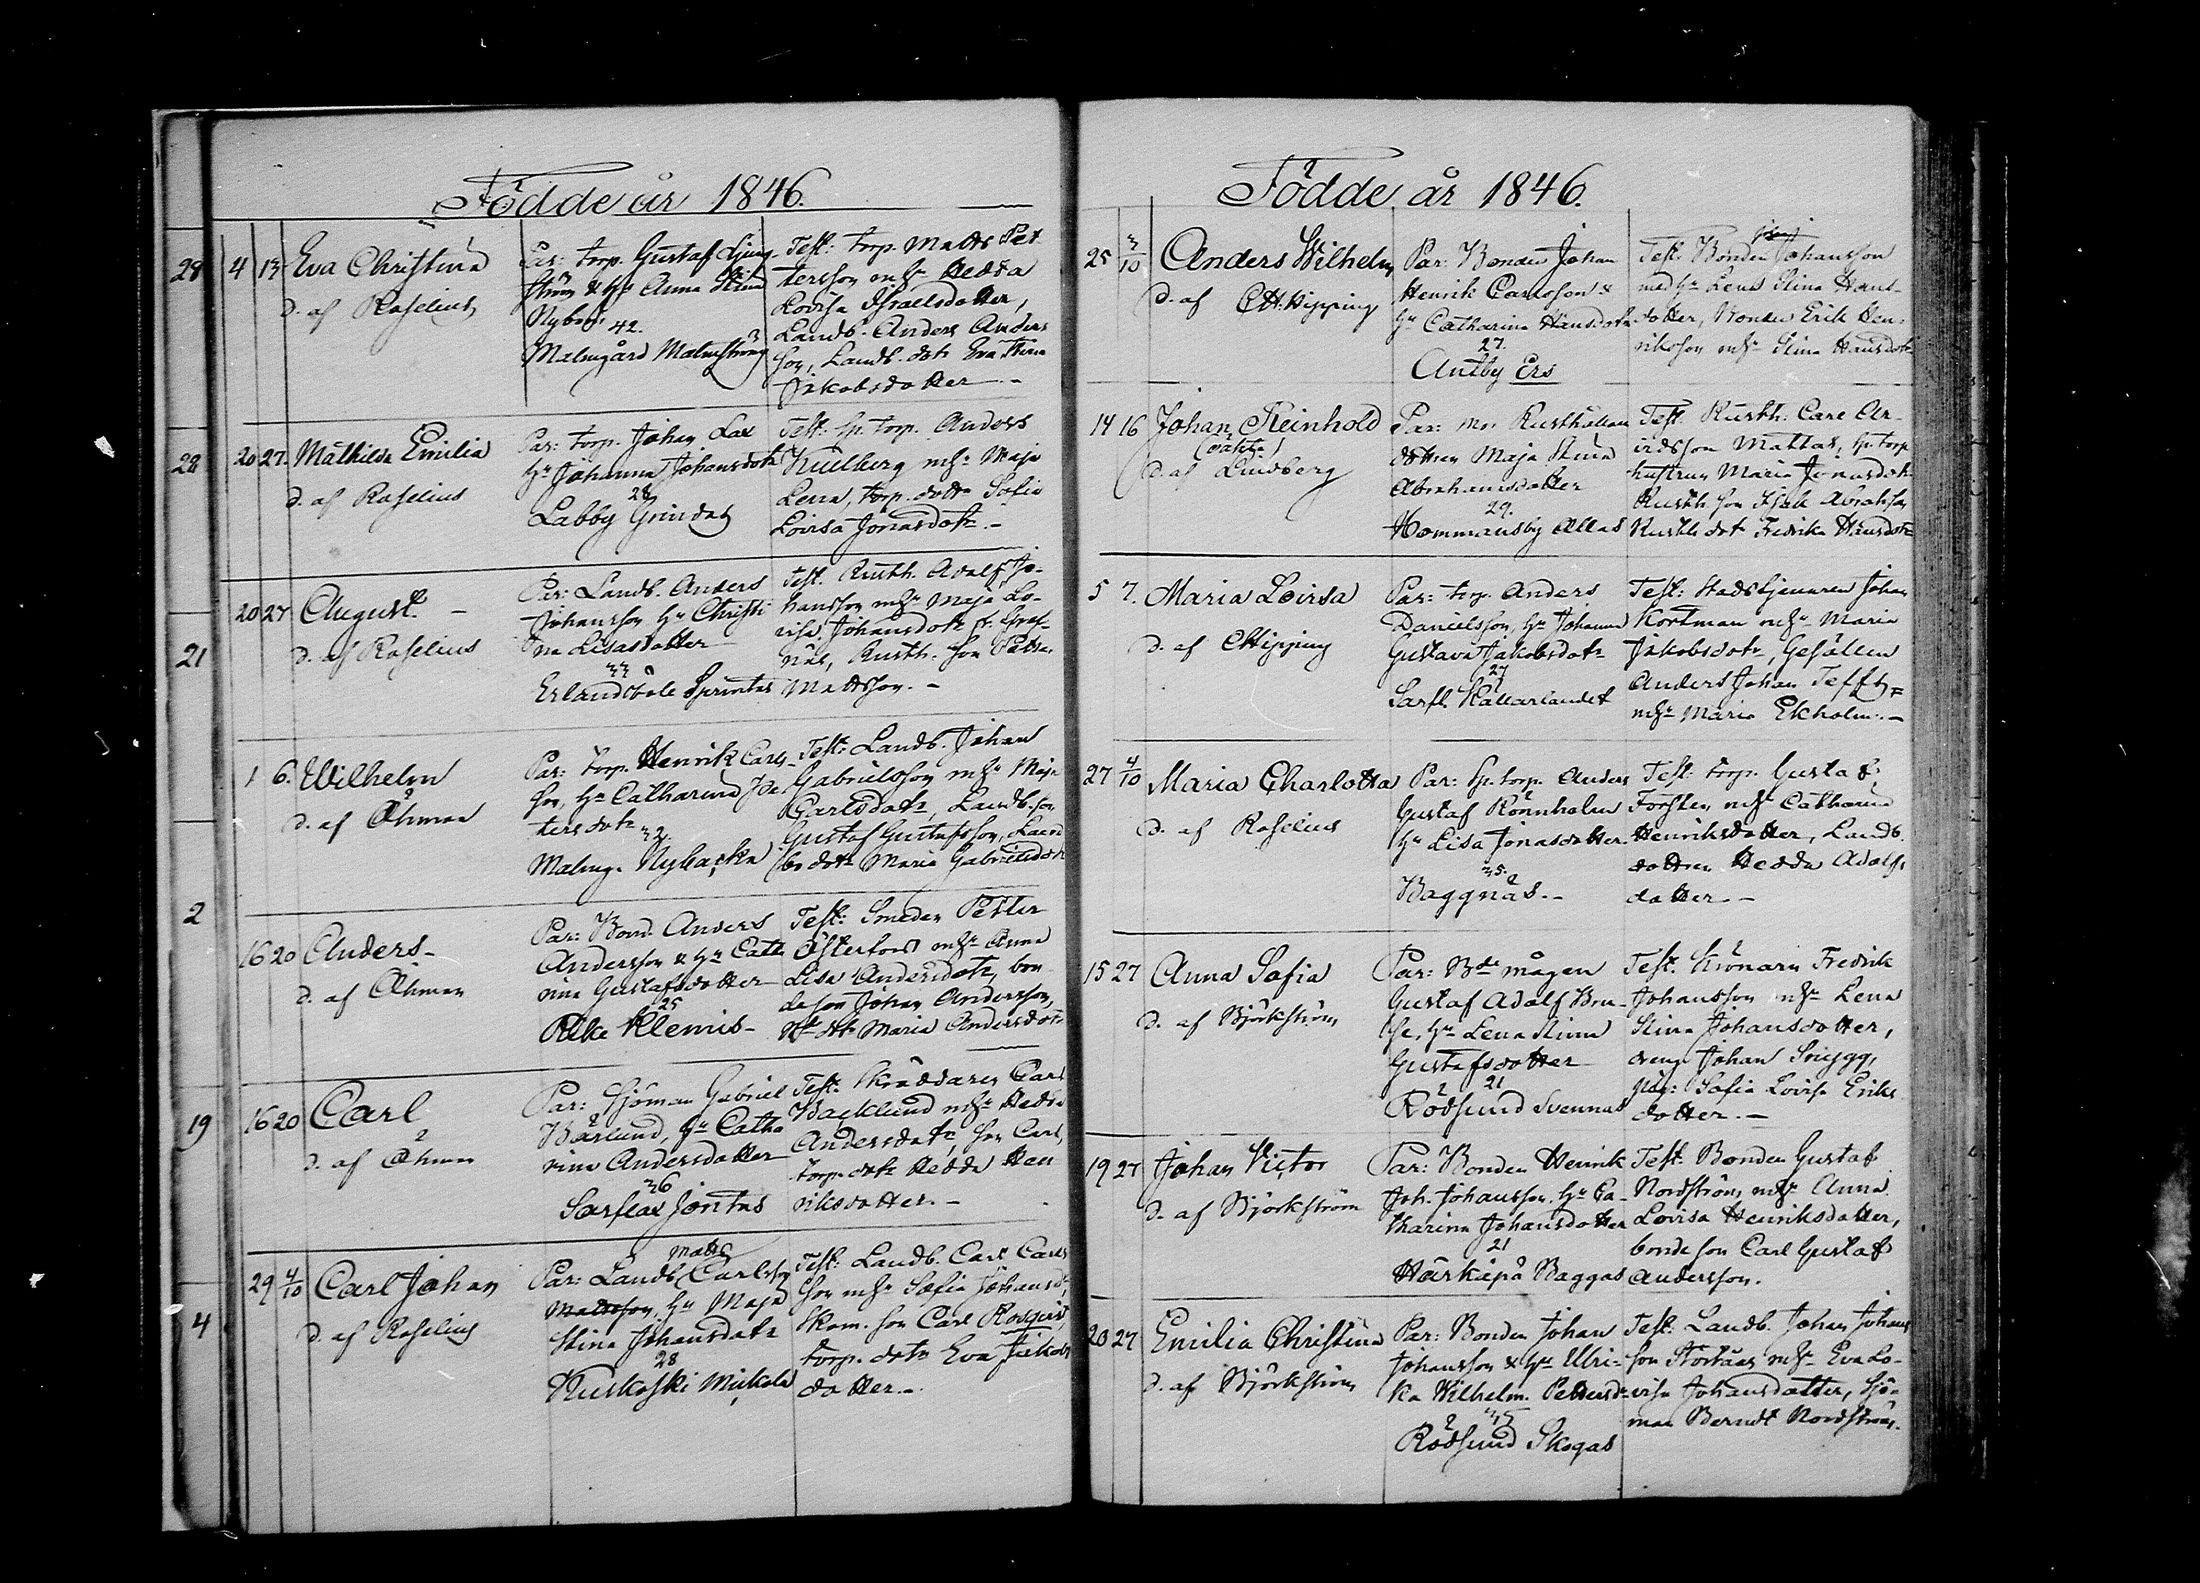 Födde år 1846.
28
4 13 Eva Christina
d. af Roselius
Par: torp. Gustaf Ljung
ström & Hu Anna Stina
Nyberg
42.
Malmgård Malmström
Test: torp. Matts Pet
tersson m. Hu Hedda
Lovisa Israelsdotter,
Landb. Anders Anders
son, Landb. dotr Eva Stina
Jakobsdotter -
28
20 27. Mathilda Emilia
d. af Roselius
Par: torp. Johan Lax
Hu Johanna Johansdotr
28
Labby Grindas
Test: sp. torp. Anders
Kullberg m. Hu Maja
Lena, torp. dottr Sofia
Lovisa Jonasdotr. -
21
20 27 August. -
d. af Roselius
Par: Landb. Anders
Johansson Hu Christi
na Lisasdotter
33
Erlandsböle
Test. Rusth. Adolf Jo-
hansson m. Hu Maja Lo-
visa Johansdotr fr. Gref-
näs, Rusth. son Petter
Mattsson. -
1 6. Wilhelm
d. af Öhman
Par: torp. Henrik Carls-
son, Hu Catharina Pet
tersdotr
32.
Malmg. Nybacka
Test: Landb. Johan
Gabrielsson m. Hu Maja
Carlsdotr, Landb. son
Gustaf Gustafsson, Land
bo dotr Maria Gabrielsdotr
2
16 20 Anders -
d. af Öhman
Par: Bond. Anders
Andersson & Hu Catha
rina Gustafsdotter
25
Rike Klemis -
Test: Smeden Petter
Österfors m. Hu Anna
Lisa Andersdotr, bon
deson Johan Andersson,
Bde dtr Maria Andersdotr
19
16 20 Carl
d. af Öhman
Par: Sjöman Gabriel
Bärlund, Hu Catha
rina Andersdotter
36
Sarflax Jontas
Test: Skräddaren Carl
Backlund m. Hu Hedda
Andersdotr, son Carl,
torp. dotr Hedda Hen
riksdotter. -
4
29 4/10 Carl Johan
d. af Roselius
Mats
Par: Landb. Carlsson
Mattsson, Hu Maja
Stina Johansdotr
28
Kuskoski Mickels
Test: Landb. Carl Carls
son m. Hu Sofia Johansd.,
Skom. son Carl Rosqvist,
torp. dotr Eva Jakobs
dotter. -
Födde år 1846.
25 3/10 Anders Wilhelm
d. af CH. Hipping
Par: Bonden Johan
Henrik Carlsson &
Hu Catharina Hansdotr
27.
Antby Ers
Test. Bonden Johansson
med Hu Lena Stina Hans-
dotter, Bonden Erik Hen-
riksson m. Hu Stina Hansdotr
14 16 Johan Reinhold
(oäkta)
d. af Lindberg
Par: m:r Rusthållare
dottren Maja Stina
Abrahamsdotter
29.
Hommansby Allas
Test. Rusth. Carl Ar-
vidsson Mattas, sp. torp
hustrun Maria Jonasdotr
Rusth son Isak Abrahsson
Rusth dot Fredrika Hansdotr
5 7. Maria Lovisa
d. af CHipping
Par: torp. Anders
Danielsson, Hu Johanna
Gustava Jakobsdotr
27
Sarfl. Kallarlandet
Test: Stadstjenaren Johan
Kortman m. Hu Maria
Jakobsdotr, Gesällen
Anders Johan
m. Hu Maria Ekholm. -
27 4/10 Maria Charlotta
d. af Roselius
Par: Sp. torp. Anders
Gustaf Rönnholm
Hu Lisa Jonasdotter
35.
Baggnäs. -
Test: torp. Gustaf
Forssten m. Hu Catharina
Henriksdotter, Landb.
dottren Hedda Adolfs
dotter -
15 27 Anna Sofia
d. af Björkström
Par: Bde mågen
Gustaf Adolf Bru-
se, Hu Lena Stina
Gustafsdotter
21
Rödsund Svennas
Test. Krönaren Fredrik
Johansson m. Hu Lena
Stina Johansdotter,
dreng Johan Snygg,
pig: Sofia Lovisa Eriks
dotter. -
19 27 Johan Victor
d. af Björkström
Par: Bonden Henrik
Joh. Johansson, Hu Ca-
tharina Johansdotter
21
Härkäpä Baggas
Test. Bonden Gustaf
Nordström m. Hu Anna
Lovisa Henriksdotter,
bonde son Carl Gustaf
Andersson.
20 27 Emilia Christina
d. af Björkström
Par: Bonden Johan
Johansson & Hu Ulri-
ka Wilhelm. Pettersdr
35
Rödsund Skogas
Test: Landb. Johan Johans
son Storkäns m. Hu Eva Lo-
visa Johansdotter, Sjö-
man Berndt Nordström.